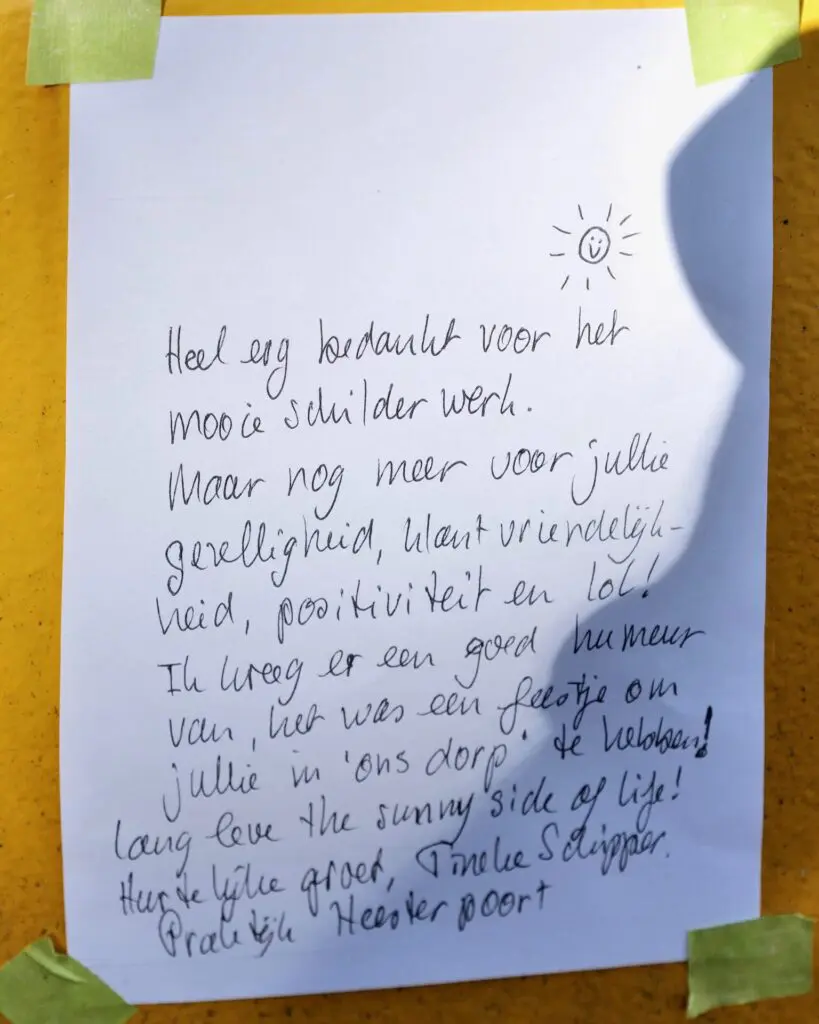 Heel erg bedankt voor het
mooie schilderwerk.
Maar nog meer voor jullie
gezelligheid, klantvriendelijk-
heid, positiviteit en lol!
Ik kreeg er een goed humeur
van, het was een feestje om
jullie in 'ons dorp' te hebben!
lang leve the sunny side of life!
Hartelijke groet, Tineke Schipper.
Praktijk Heesterpoort